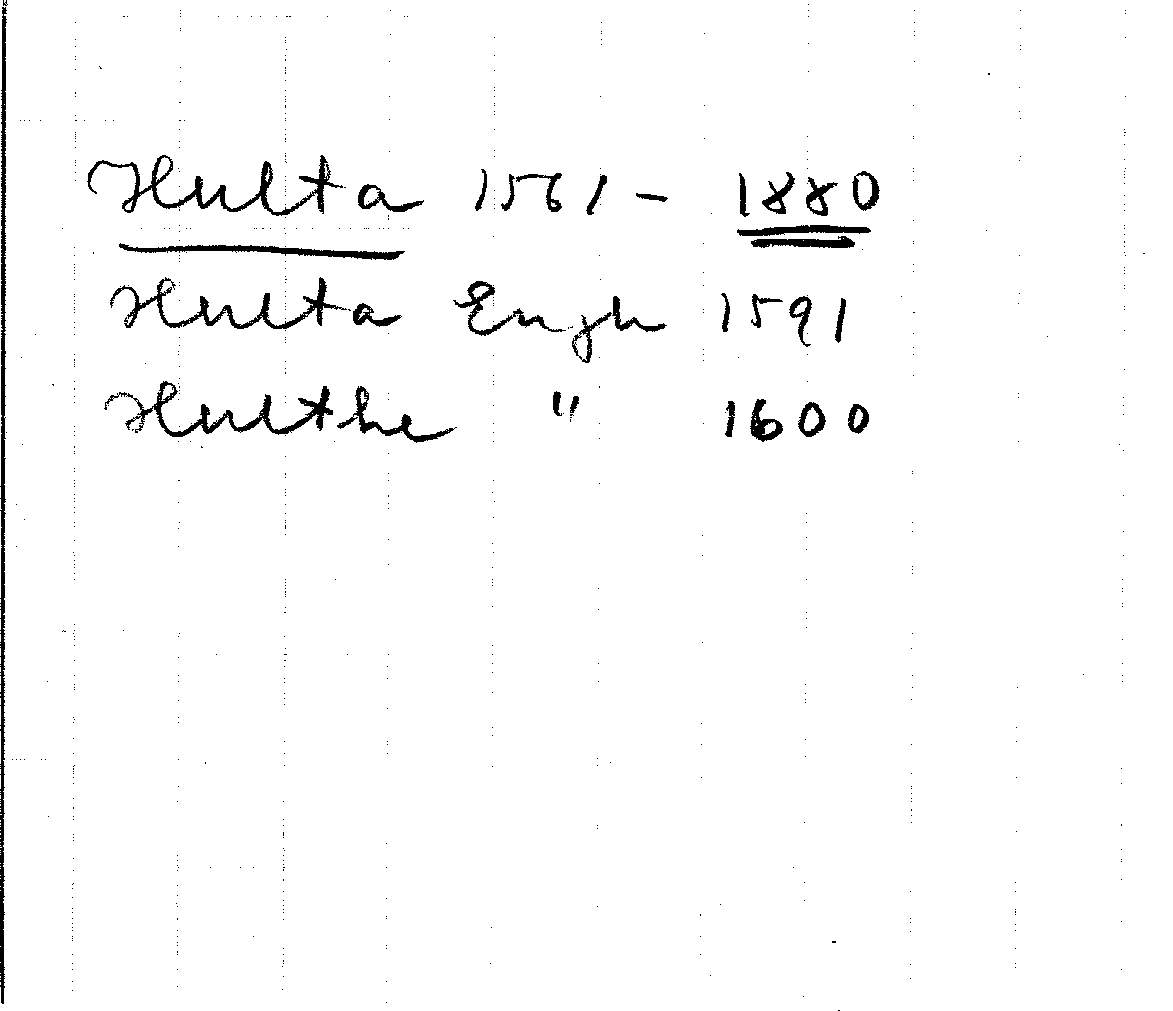 Hulta 1561 - 1880
Hulta Engh 1591
Hulthe " 1600